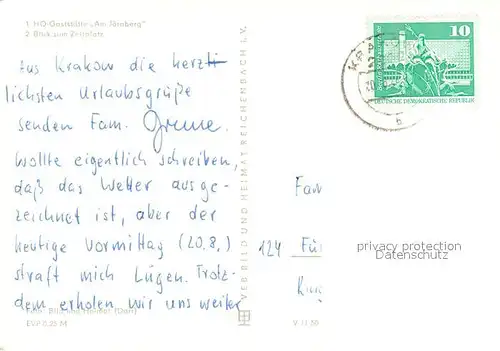 1. HO-Gaststätte „Am Jörnberg"
2. Blick zum Zeltplatz
Aus Krakow die herzli
lichsten Urlaubsgrüße
senden Fam. Greune.
Wollte eigentlich schreiben,
daß das Wetter ausge-
zeichnet ist, aber der
heutige Vormittag (20.8.)
straft mich Lügen. Trotz-
dem erholen wir uns weiter
Foto: Bild und Heimat (Darr)
EVP 0,25 M
VEB BILD UND HEIMAT REICHENBACH I. V.
V 11 50
10
DEUTSCHE DEMOKRATISCHE REPUBLIK
KRA
6
Fam
124
privacy protection
Datenschutz